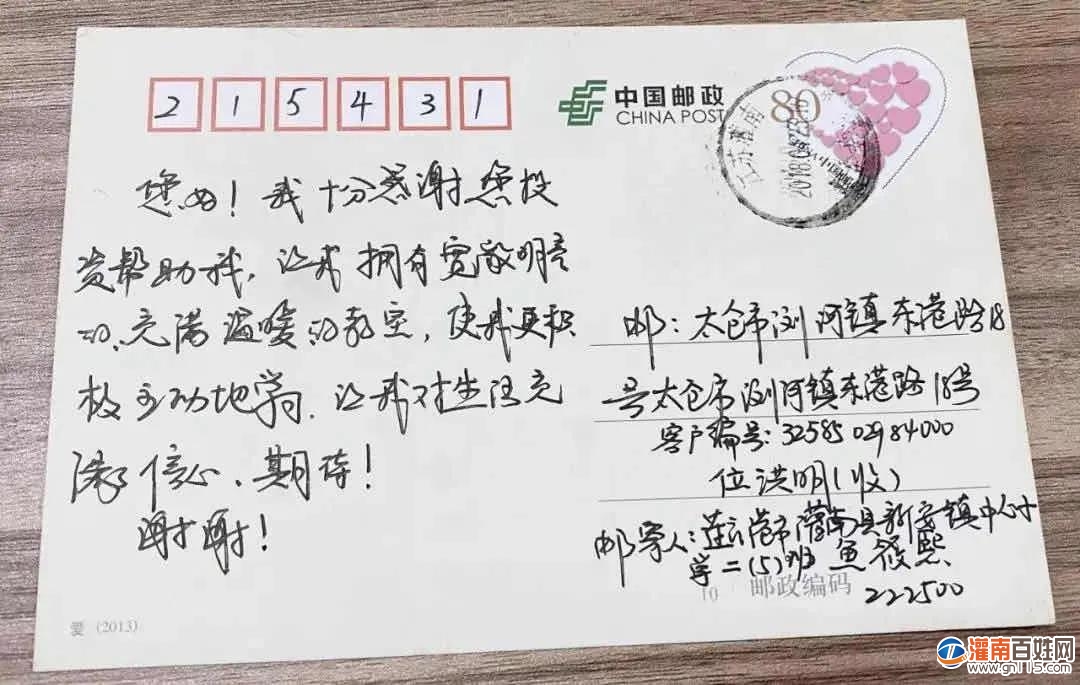 215431
中国邮政
CHINA POST
80
江苏灌南
您好！我十分感谢您投
资帮助我，让我拥有宽敞明亮
的、充满温暖的教室，使我更积
极主动地学习，让我对生活充
满了信心、期待！
谢谢！
邮：太仓市浏河镇东港路18
号太仓市浏河镇东港路18号
客户编号：3258502984000
位洪明（收）
邮寄人：连云港市灌南县新安镇中心小
学二(5)班 鱼筱熙
222500
10 邮政编码
爱 (2013)
灌南百姓网
www.gn115.com